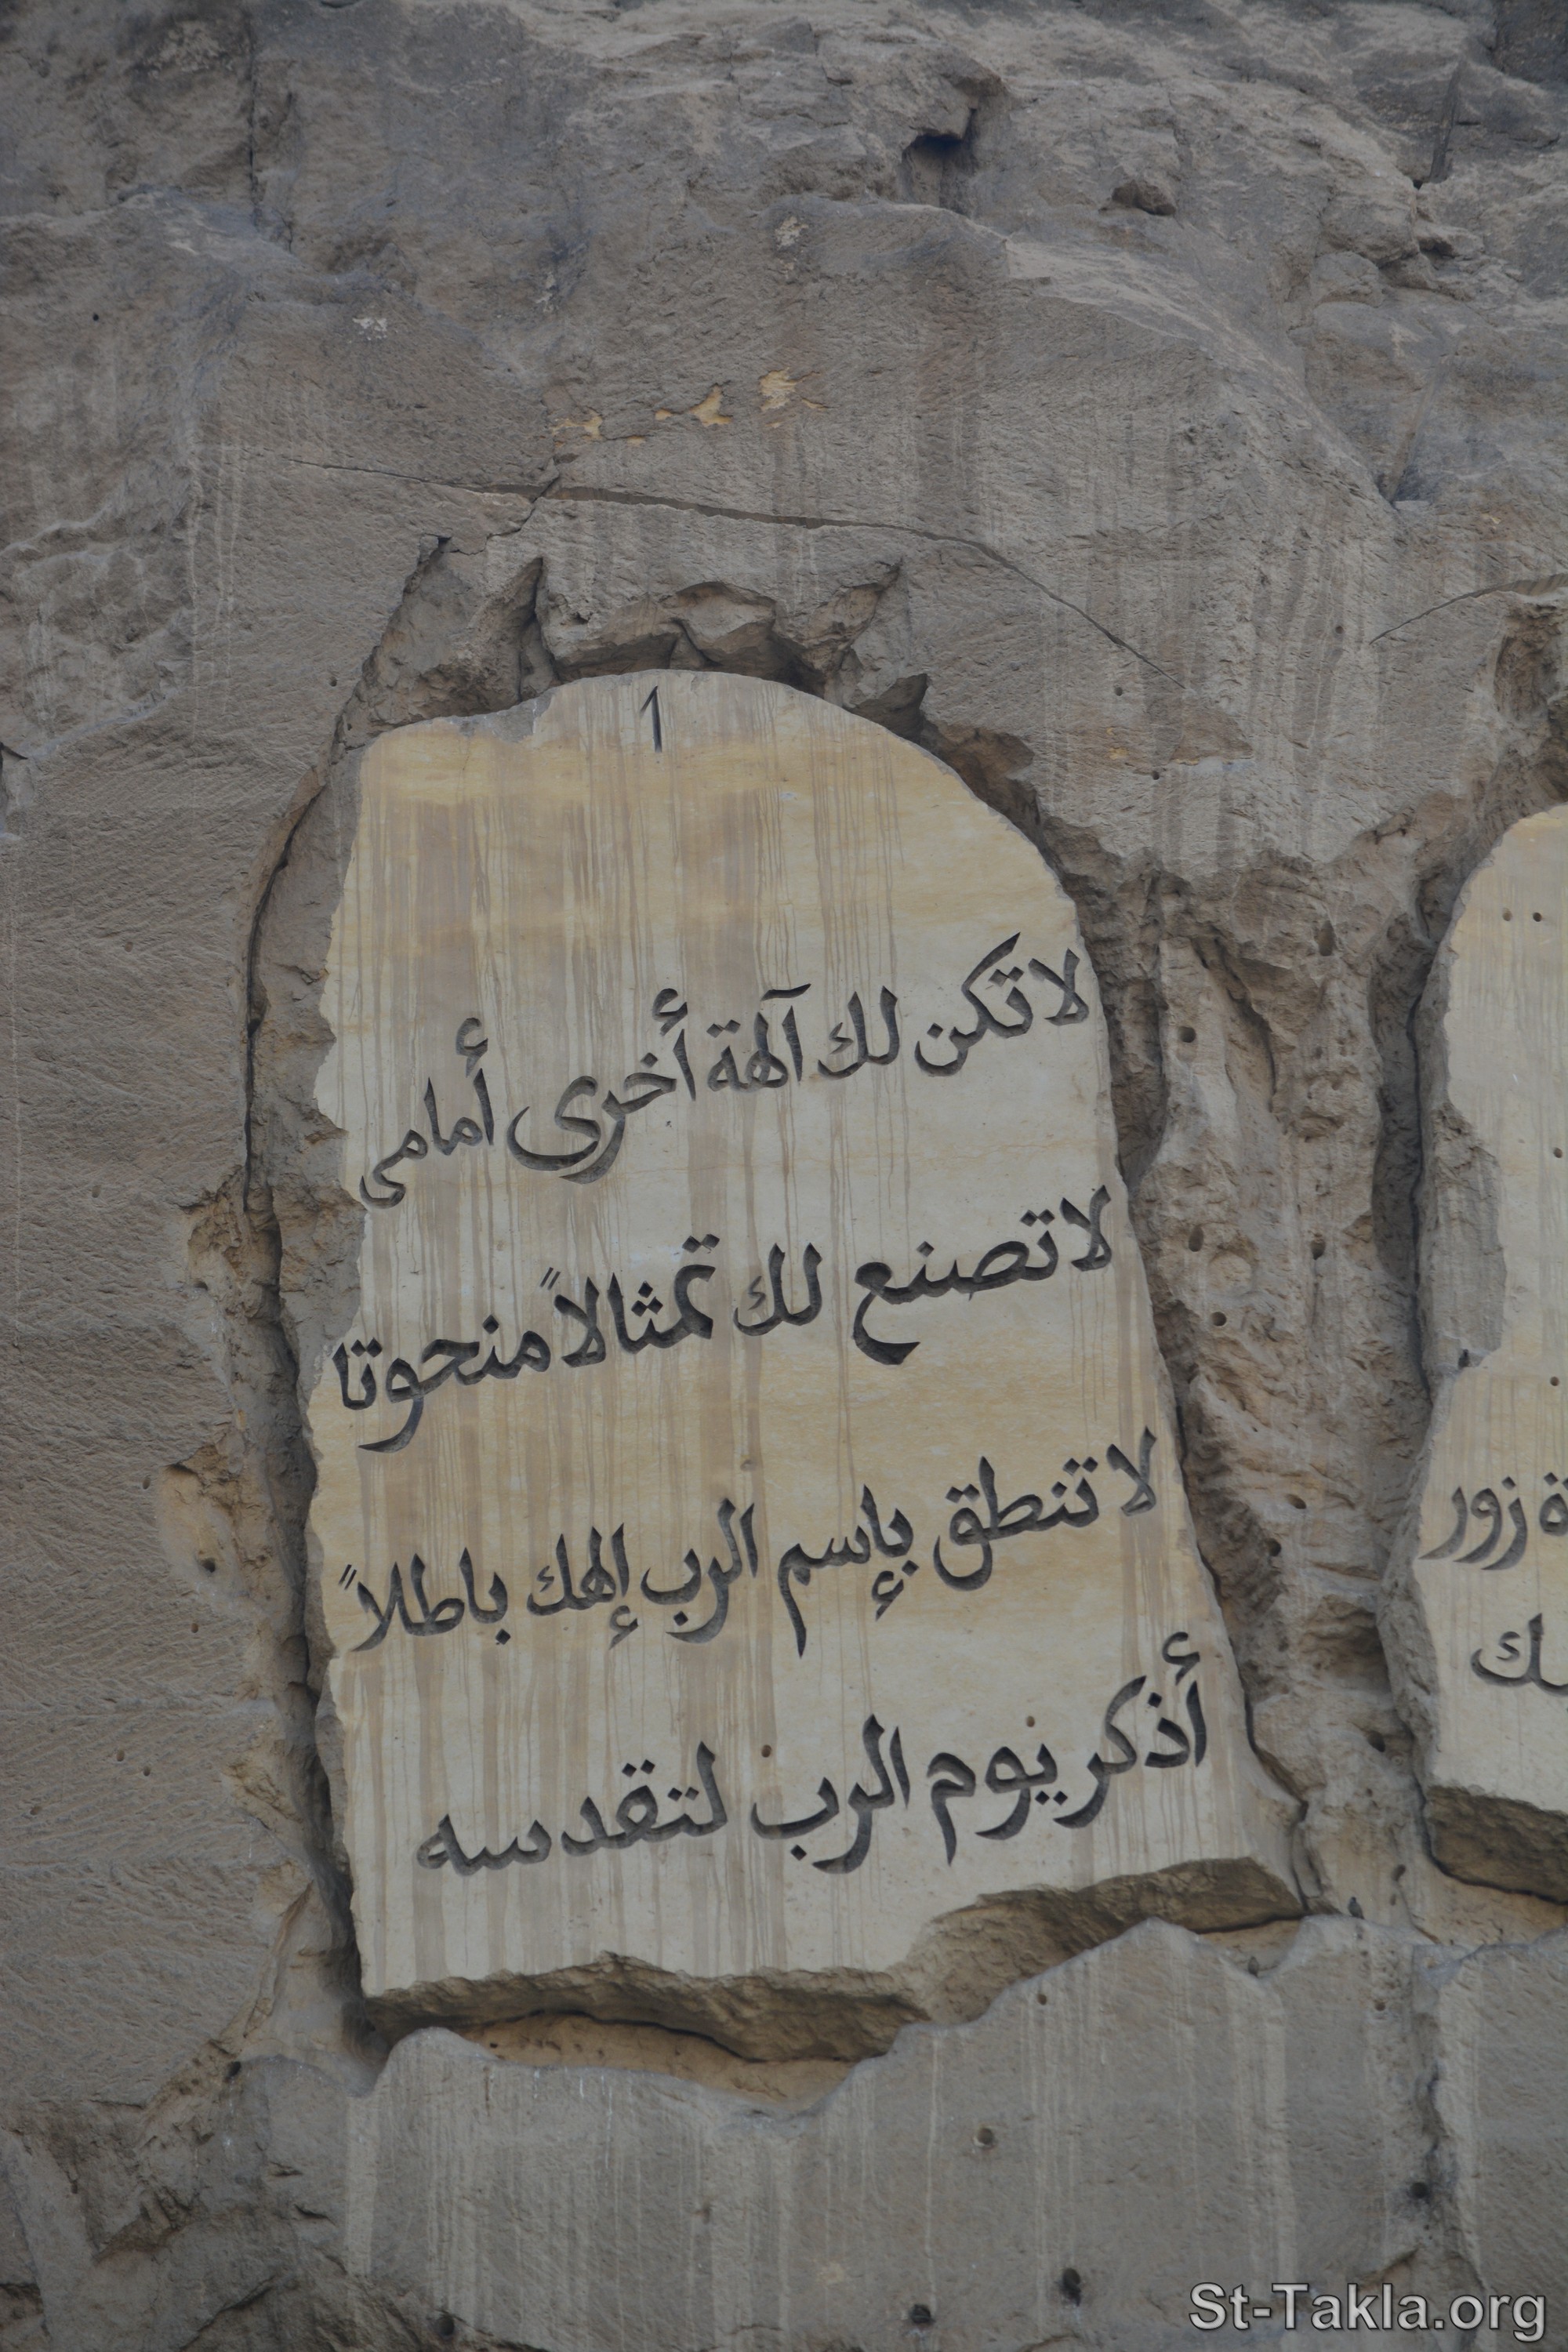 1
لا تكن لك آلهة أخرى أمامى
لا تصنع لك تمثالاً منحوتا
لا تنطق بإسم الرب إلهك باطلاً
أذكر يوم الرب لتقدسه
زور
St-Takla.org